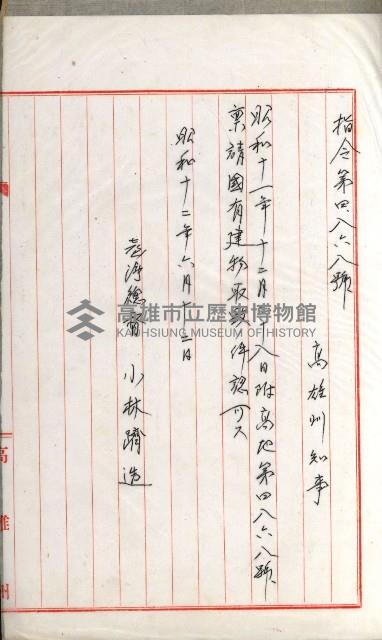 指令第四八六八號
高雄州知事
昭和十一年十二月八日附高地第四八六八號
稟請國有建物取件認可ス
昭和十二年六月十二日
臺灣總督 小林躋造
高雄州
高雄市立歷史博物館
KAOHSIUNG MUSEUM OF HISTORY